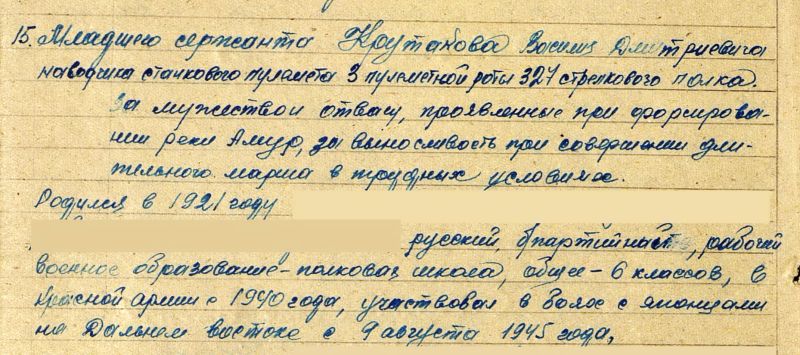 15. Младшего сержанта Крутакова Василия Дмитриевича
наводчика станкового пулемета 3 пулеметной роты 327 стрелкового полка.
За мужество и отвагу, проявленные при форсирова-
нии реки Амур, за выносливость при совершении дли-
тельного марша в трудных условиях.
Родился в 1921 году
русский, б/партийность, рабочий
военное образование - полковая школа, общее - 6 классов, в
красной армии с 1940 года, участвовал в боях с японцами
на Дальнем востоке с 9 августа 1945 года,